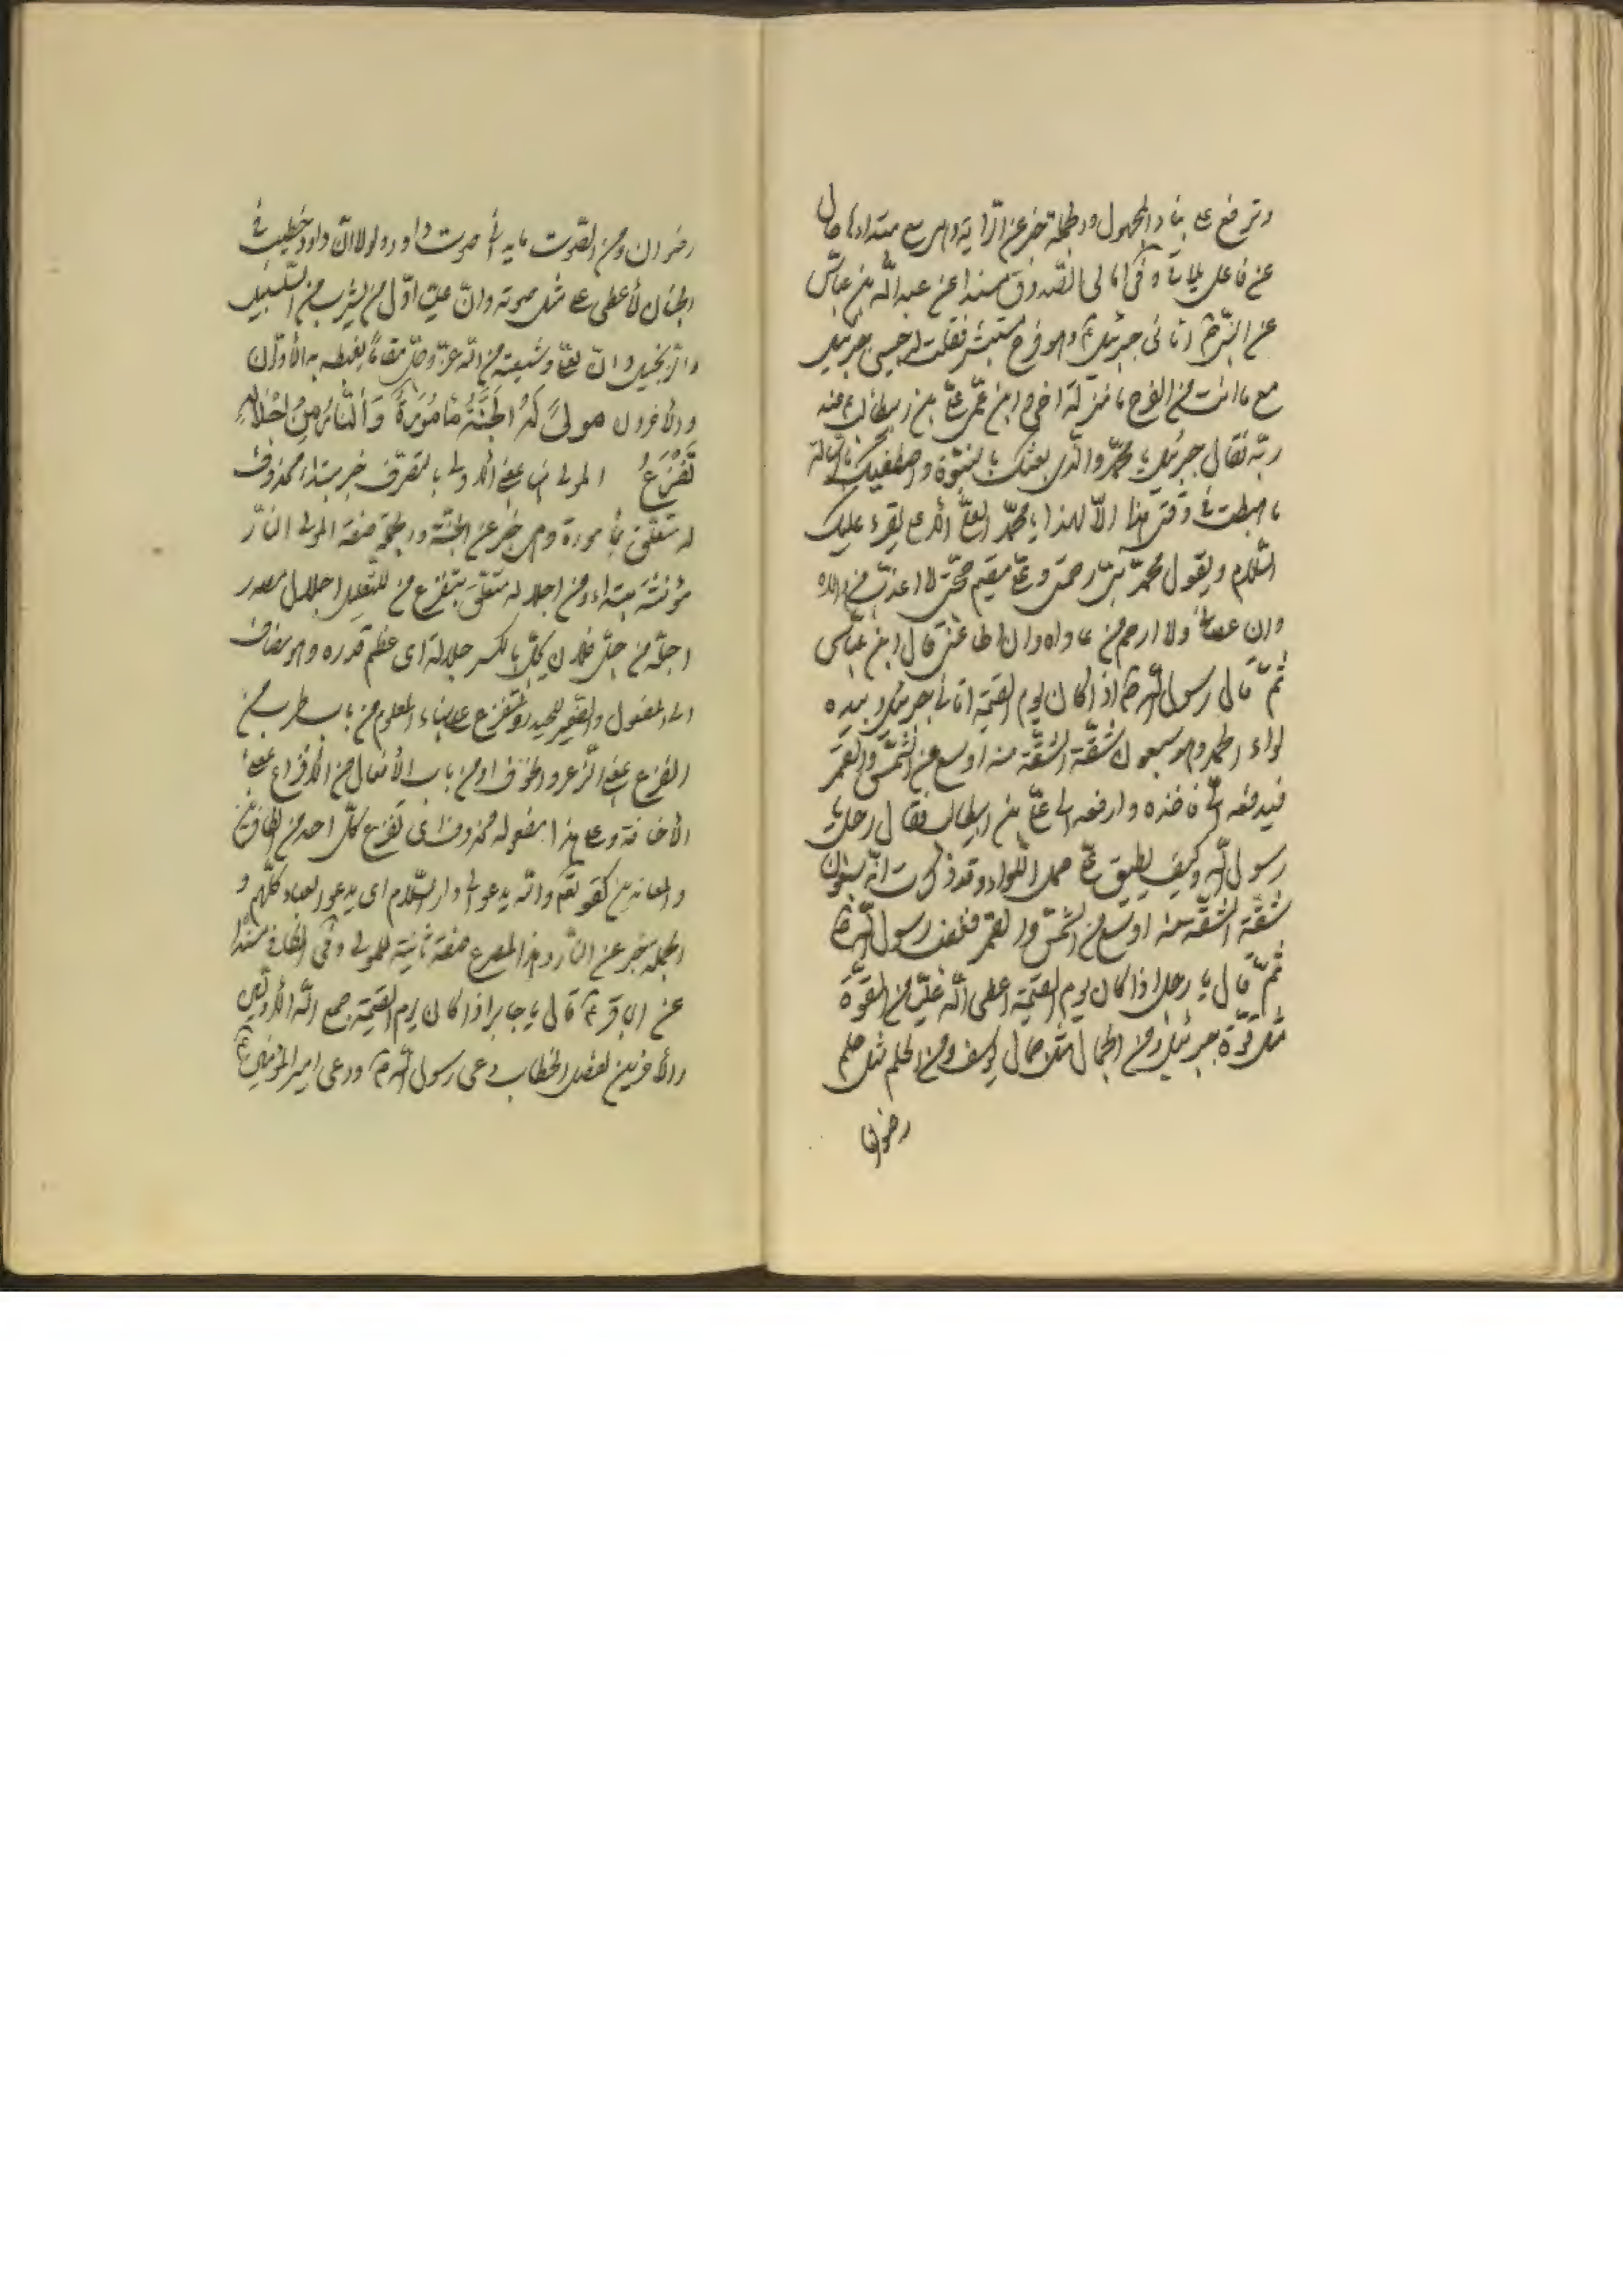 وترفع على بناء المجهول والجملة خبر عن الراية وهى مع مبتداءها حال
عن فاعل يات وفى امالى الصدوق مسندا عن عبد الله بن عباس
عن النبى ص اتانى جبرئيل ع وهو فرح مستبشر فقلت له حبيبى جبرئيل
مع ما انت من الفرح ما منزلة اخى وابن عمى على بن ابيطالب ع عند
ربه فقال جبرئيل يا محمد والذى بعثك بالنبوة واصطفيك بالرسالة
ما هبطت فى وقتى هذا الا لهذا يا محمد العلى الأعلى يقرء عليك
السلام ويقول محمد نبى رحمتى وعلى مقيم حجتى لا اعذب من والاه
وان عصانى ولا ارحم من عاداه وان اطاعنى قال ابن عباس
ثم قال رسول الله ص اذا كان يوم القيمة اتانى جبرئيل وبيده
لواء الحمد وهو سبعون شقة الشقة منه اوسع من الشمس والقمر
فيدفعه الى فاخذه وادفعه الى على بن ابيطالب فقال رجل يا
رسول الله وكيف يطيق على حمل اللواء وقد ذكرت انه سبعون
شقة الشقة منه اوسع من الشمس والقمر فغضب رسول الله ص
ثم قال يا رجل اذا كان يوم القيمة اعطى الله عليا من القوة
مثل قوة جبرئيل ومن الجمال مثل جمال يوسف ومن الحلم مثل حلم
رضوان
رضوان ومن الصوت ما يدانى صوت داود ولولا ان داود خطيب فى
الجنان لأعطى على مثل صوته وان عليا اول من يشرب من السلسبيل
والزنجبيل وان لعلى وشيعته من الله عز وجل مقاما يغبطه به الأولون
والأخرون مولىً لَهُ الجَنَّةُ مَأمُورَةٌ وَالنَّارُ مِنْ اِجْلالِهِ
تَفْزَعُ المولى هنا بمعنى الأولى بالتصرف خبر مبتداء محذوف
له متعلق بمأمورة وهى خبر عن الجنة والجملة صفة المولى النار
مؤنثة مبتداء ومن اجلاله متعلق بتفزع من للتعليل اجلال مصدر
اجله من جل فلان يجل بالكسر جلالة اى عظم قدره وهو مضاف
الى المفعول والضمير للحيدر وتفزع على بناء المعلوم من باب
الفزع بمعنى الذعر والخوف او من باب الأفعال من الأفزاع بمعنى
الأخافة وعلى هذا مفعوله محذوف اى تفزع كل احد من
والمعاندين كقوله تعم والله يدعو الى دار السلام اى يدعو العباد كلهم و
الجملة خبر عن النار وهذا المصرع صفة ثانية للمولى وفى الكافى مسندا
عن الباقر ع قال يا جابر اذا كان يوم القيمة جمع الله الأولين
والأخرين لفصل الخطاب دعى رسول الله ص ودعى امير المؤمنين ع